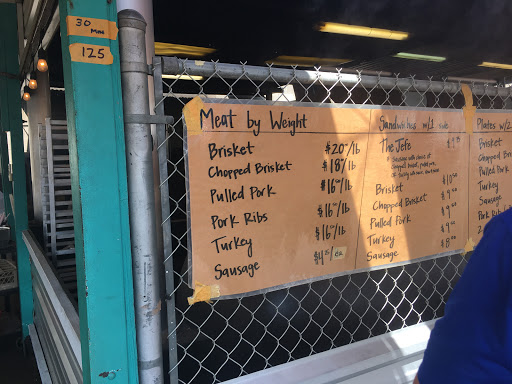 30
MIN
125
Meat by Weight
Brisket $20/lb
Chopped Brisket $18/lb
Pulled Pork $16/lb
Pork Ribs $16/lb
Turkey $16/lb
Sausage $4/ea
Sandwiches w/1 side
The Jefe
Brisket
Chopped Brisket $9
Pulled Pork $9
Turkey $9
Sausage $8
Plates w/2
Brisket
Chopped
Pulled
Turkey
Sausage
Pork Rib